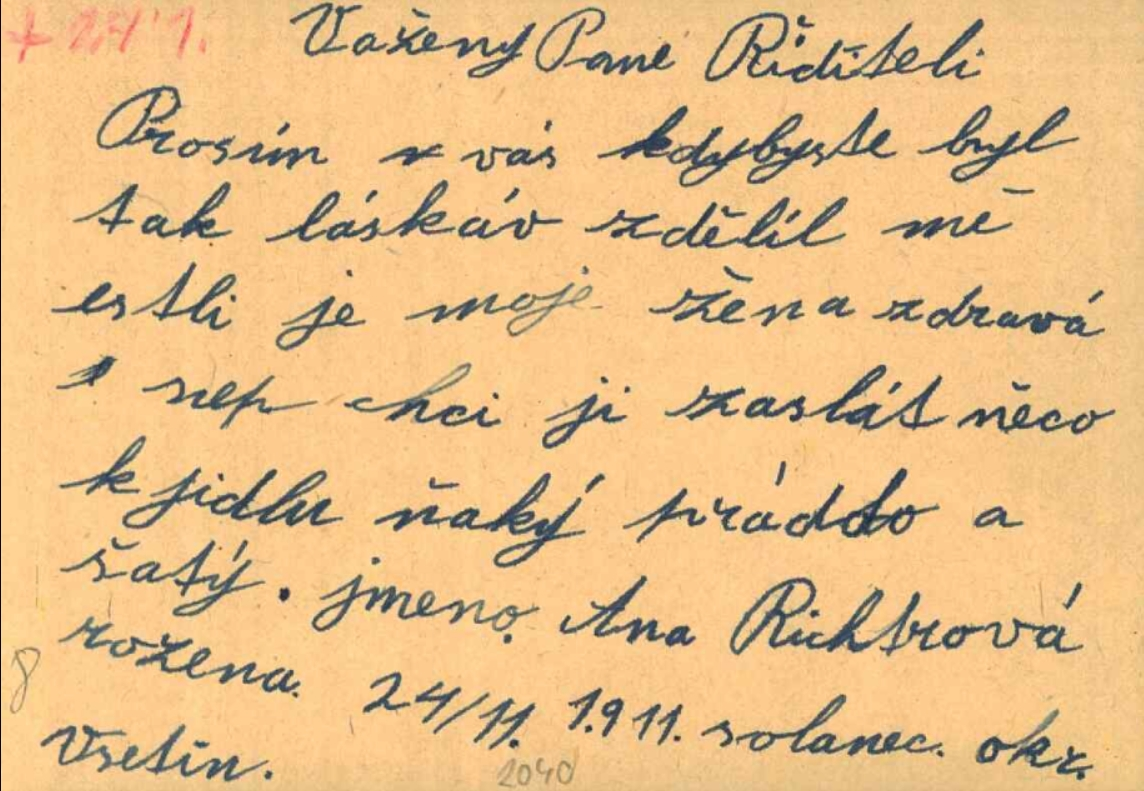 Vážený Pane Řiditeli
Prosím vás kdybyste byl
tak láskáv zdělíl mě
estli je moje žena zdravá
nep chci ji zaslát něco
k jidlu ňaký práddo a
šatý. jmeno. Ana Richtrová
rožena. 24/11. 1.911. solanec. okr.
Vsetín.
8
2040